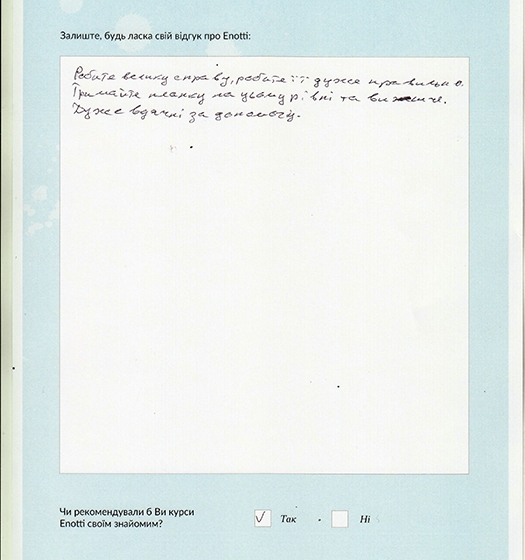 Залиште, будь ласка свій відгук про Enotti:
Робите велику справу, робите її дуже правильно.
Тримайте планку на цьому рівні та вижче.
Дуже вдячні за допомогу.
Чи рекомендували б Ви курси
Enotti своїм знайомим?
Так
Ні